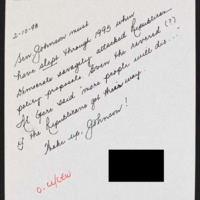 2-10-98
Sen Johnson must
have slept through 1995 when
Democrats savagely attacked Republican
policy proposals. Even the revered (?)
Al Gore said "more people will die..."
if the Republicans got their way.
Wake up, Johnson!